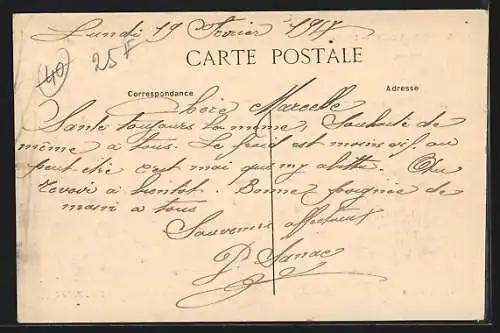 Lundi 19 Février 1917
(40) 25F
CARTE POSTALE
Correspondance
Adresse
Chère Marcelle
Santé toujours la même, Souhaite de
même à tous. Le froid est moins vif, au
peut-être c'est moi qui m'y habitue. Au
revoir à bientôt. Bonne poignée de
main à tous
Souvenirs affectueux
P. Sanac